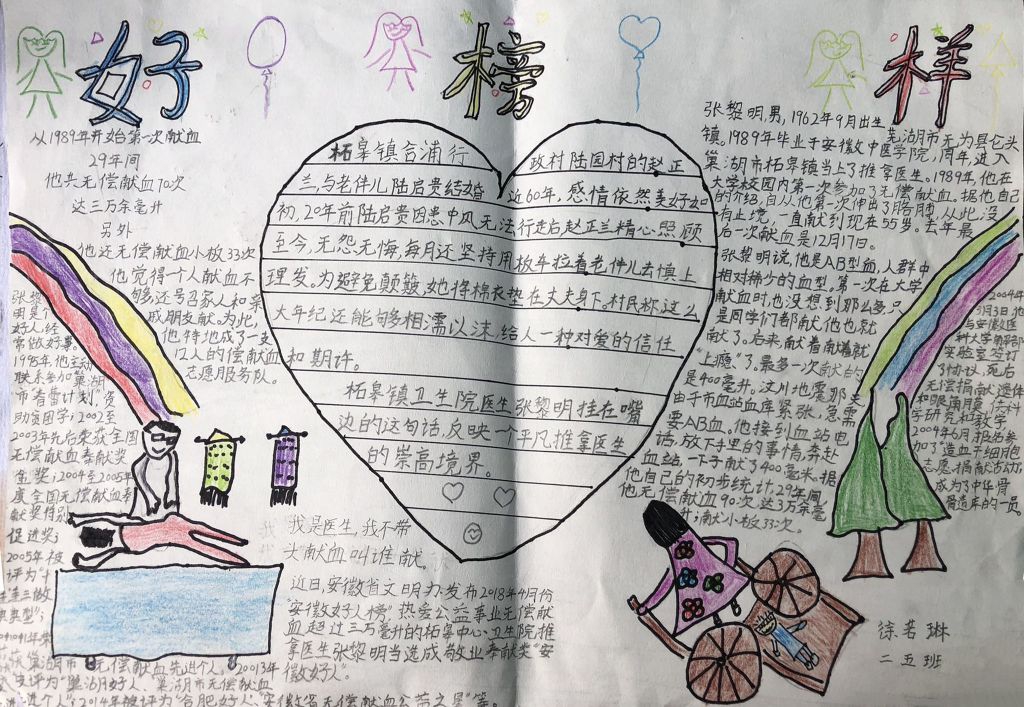 好 榜 样
从1989年开始第一次献血
29年间
他共无偿献血70次
达三万余毫升
另外
他还无偿献血小板33次
他觉得一个人献血不
够还号召家人和亲
戚朋友献。为此,
他特地成了一支
12人的偿献血
志愿服务队。
张黎
明是个
好人经
常做好事
1995年,他主动
联系参加巢湖
市春蕾计划,资
助贫困学;2002至
2003年先后荣获全国
无偿献血奉献奖
金奖;2004至2005年
度全国无偿献血奉
献奖特别
促进奖;
2005年被
评为"十
典型";
获巢湖市无偿献血先进个人。2013年
被评为"巢湖好人、巢湖市无偿献血
先进个人";2014年被评为"合肥好人、安徽省无偿献血公荣之星"等。
柘皋镇合浦行政村陆国村的赵正
兰,与老伴儿陆启贵结婚近60年,感情依然美好如
初,20年前陆启贵因患中风无法行走后,赵正兰精心照顾
至今,无怨无悔,每月还坚持用板车拉着老伴儿去镇上
理发。为避免颠簸,她将棉衣垫在丈夫身下。村民称这么
大年纪还能够相濡以沫,给人一种对爱的信任
和期许。
柘皋镇卫生院医生张黎明挂在嘴
边的这句话,反映一个平凡推拿医生
的崇高境界。
我是医生,我不带
头献血叫谁献。
近日,安徽省文明办发布2018年4月份
"安徽好人榜"热爱公益事业无偿献
血超过三万毫升的柘皋中心卫生院推
拿医生张黎明当选成敬业奉献类"安
徽好人"。
张黎明,男,1962年9月出生芜湖市无为县仑头
镇。1989年毕业于安徽中医学院,同年,进入
巢湖市柘皋镇当上了推拿医生。1989年,他在
大学校园内第一次参加了无偿献血。据他自己
的介绍,自从他第一次伸出了胳膊,从此,没
有止境,一直献到现在55岁。去年最
后一次献血是12月17日。
张黎明说,他是AB型血,人群中
相对稀少的血型。第一次在大学
献血时,也没想到那么多,只
是同学们都献,他也就
献了。后来,献着献着就
"上瘾"了。最多一次献血的
是400毫升。汶川地震那
由于市血站血库紧张,急需
要AB血。他接到血站电
话,放下手里的事情,奔赴
血站,一下子献了400毫米。据
他自己的初步统计,29年间
他无偿献血90次,达3万余毫
升;献血小板33次。
2004年
3月3日他
与安徽医
科大学解剖
实验室签订
了协议,死后
无偿捐献遗体
和眼角膜,供科
学研究和教学
2004年6月报名参
加了造血干细胞
志愿捐献活动,
成为中华骨
髓造库的一员。
徐若琳
二五班